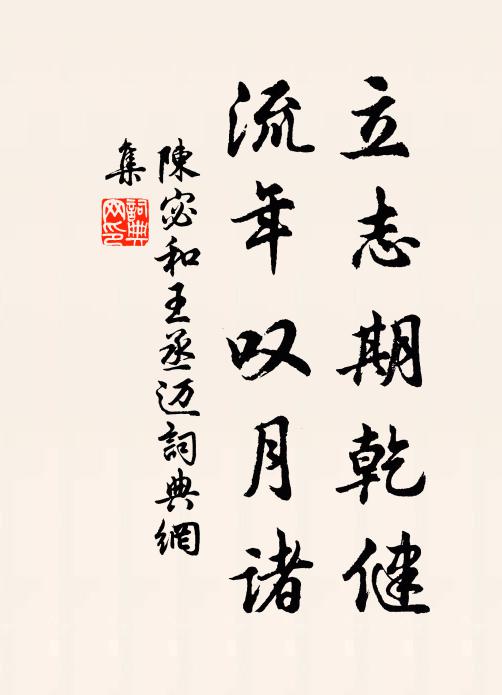 立志期乾健
流年叹月诸
陳宓和王丞迈詞典網
集
詞典
网印